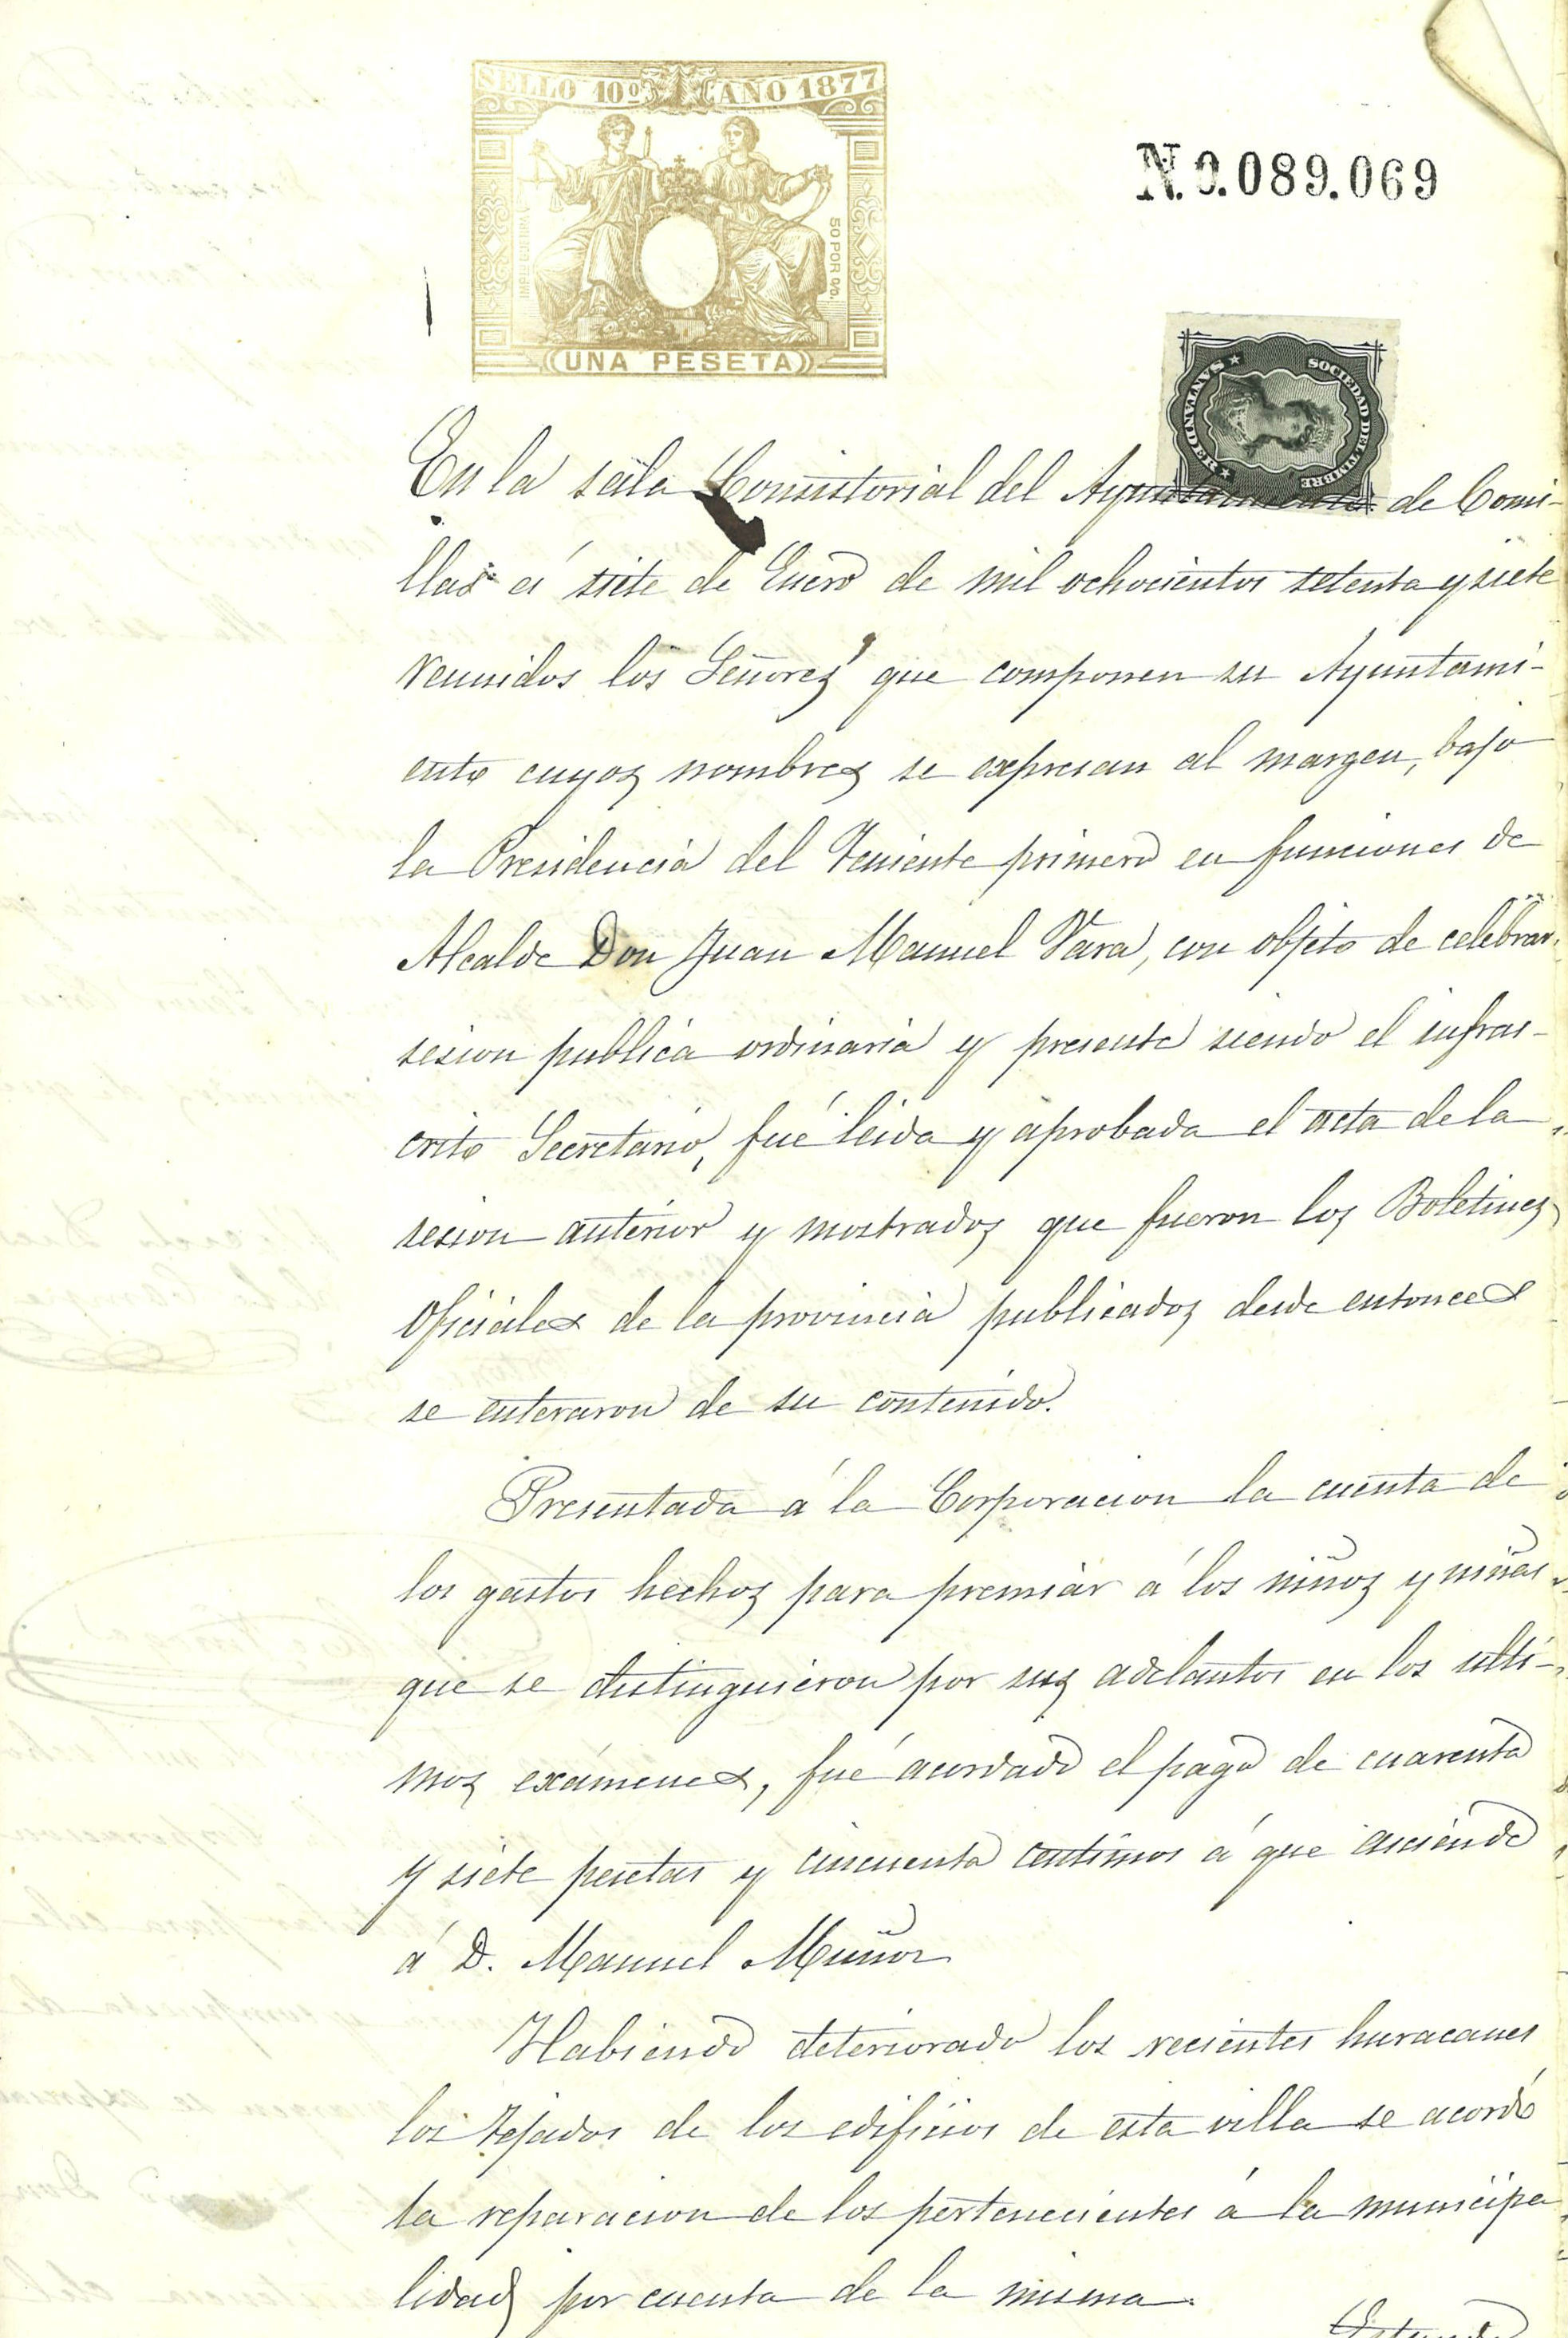 SELLO 10º AÑO 1877
50 POR 0/0.
UNA PESETA
N. 0.089.069
SOCIEDAD DEL TIMBRE
SANTANDER
En la sala Consistorial del Ayuntamiento de Comi-
llas á siete de Enero de mil ochocientos setenta y siete
reunidos los Señores que componen su Ayuntami-
ento cuyos nombres se expresan al margen, bajo
la Presidencia del Teniente primero en funciones de
Alcalde Don Juan Manuel Vara, con objeto de celebrar
sesion publica ordinaria y presente siendo el infras-
crito Secretario, fué leida y aprobada el acta de la
sesion anterior y mostrados que fueron los Boletines
Oficiales de la provincia publicados desde entonces
se enteraron de su contenido.
Presentada á la Corporacion la cuenta de
los gastos hechos para premiar á los niños y niñas
que se distinguieron por sus adelantos en los ulti-
mos exámenes, fué acordado el pago de cuarenta
y siete pesetas y cincuenta centimos á que asciende
á D. Manuel Muñoz
Habiendo deteriorado los recientes huracanes
los tejados de los edificios de esta villa se acordó
la reparacion de los pertenecientes á la municipa
lidad por cuenta de la misma.